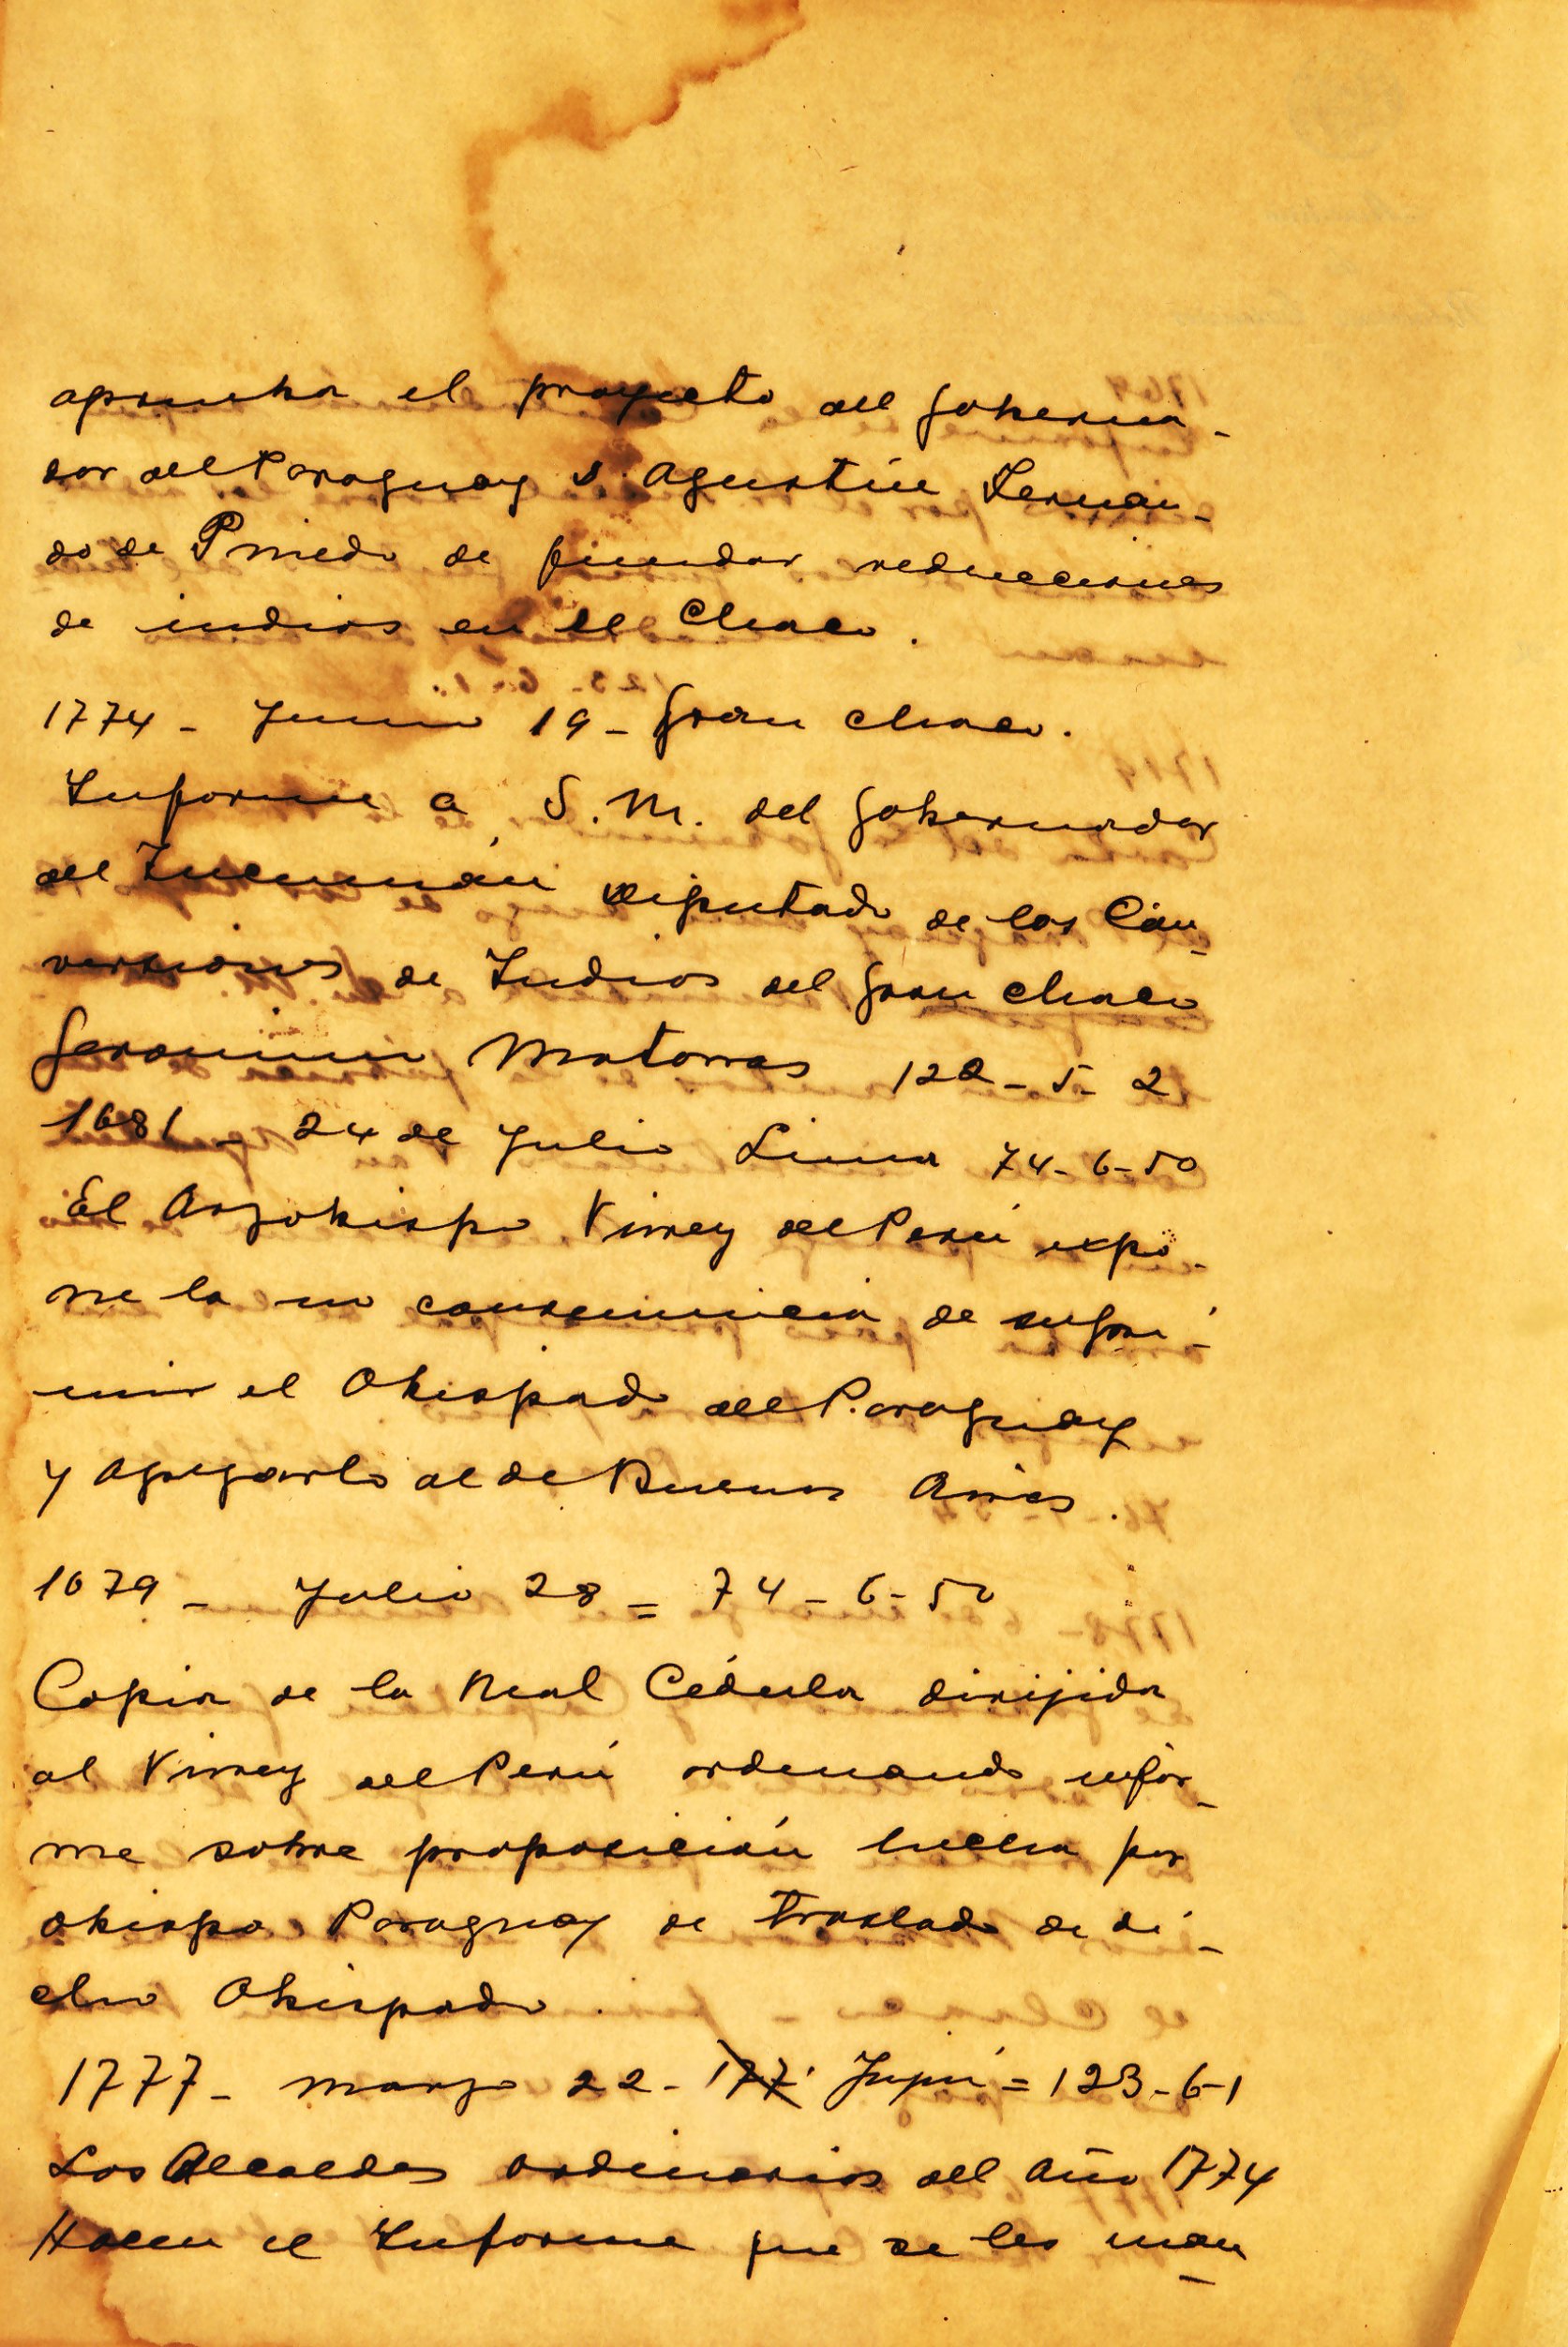 aprueba el proyecto del Goberna-
dor del Paraguay d. Agustín Fernan-
do de Pinedo de fundar reducciones
de indios en el Chaco.
1774 - Junio 19 - Gran Chaco.
Informe a S. M. del Gobernador
del Tucumán diputado de las Con-
versiones de Indios del Gran Chaco
Geronimo Matorras 122-5-2
1681 - 24 de Julio Lima 74-6-50
El Arzobispo Virrey del Perú expo-
ne la no conveniencia de supri-
mir el Obispado del Paraguay
y agregarlo al de Buenos Aires.
1679 - Julio 28 = 74-6-50
Copia de la Real Cédula dirijida
al Virrey del Perú ordenando infor-
me sobre proposición hecha por
obispo Paraguay de traslado de di-
cho Obispado.
1777 - marzo 22 - 177 Jujui = 123-6-1
Los Alcaldes ordinarios del año 1774
Hacen el Informe que se les man-